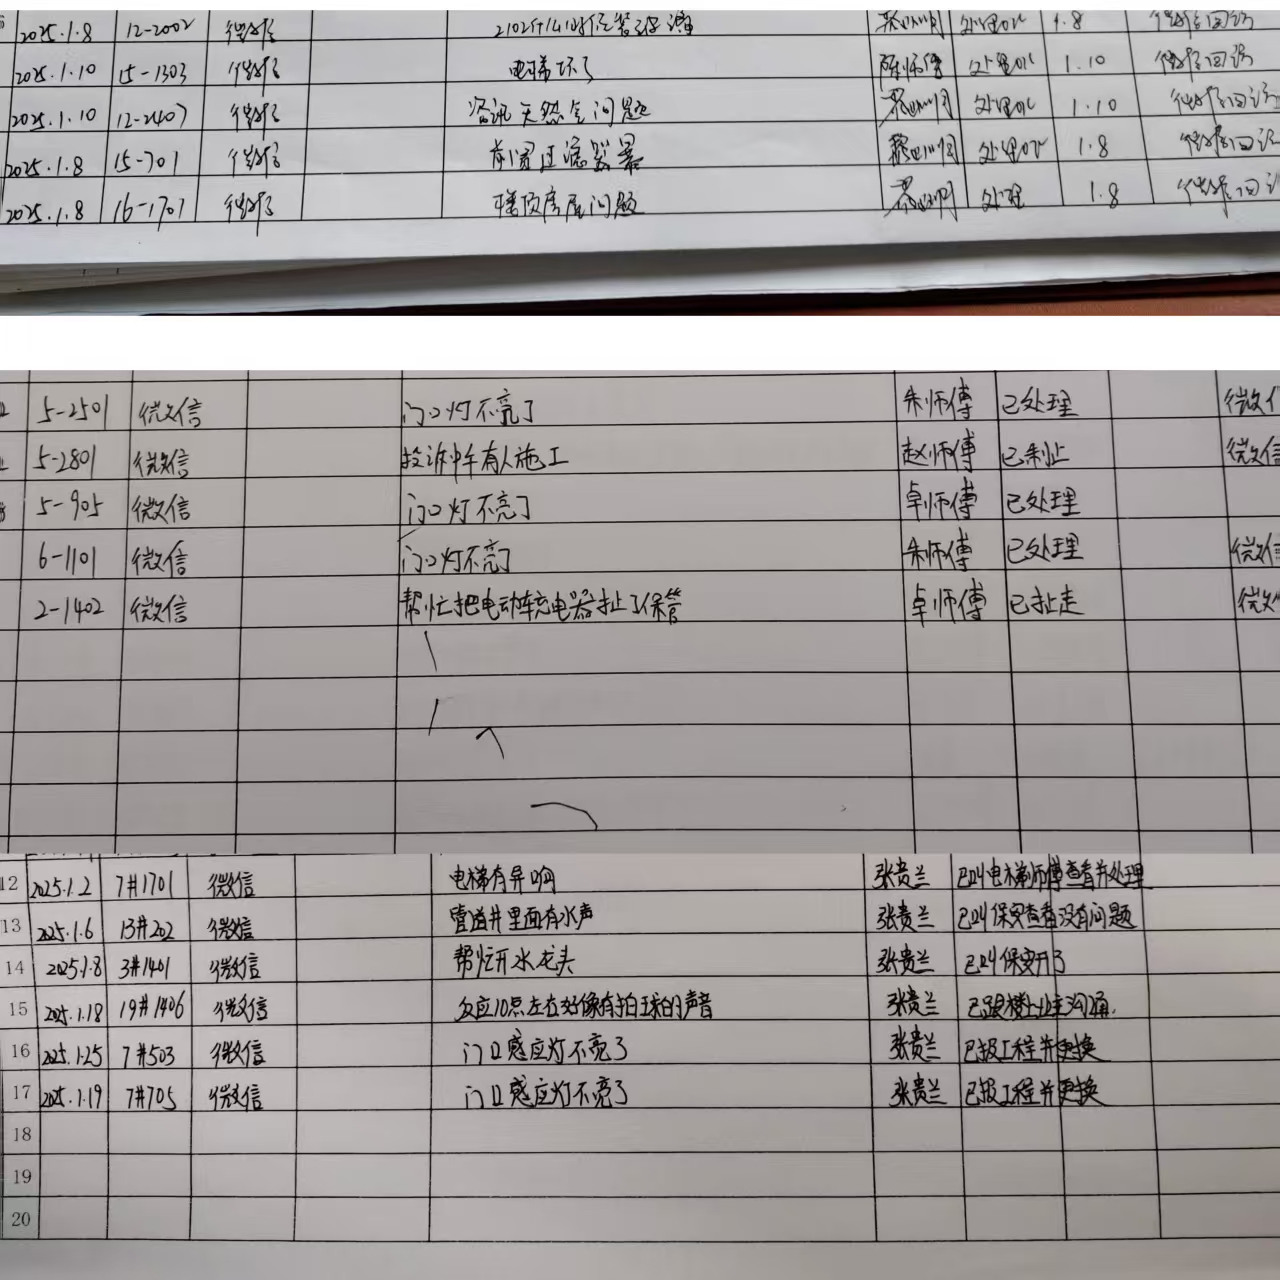 2025.1.8 12-2002 微信 处理 1.8 微信回访
2025.1.10 15-1303 微信 电梯坏了 陈师傅 处理 1.10 微信回访
2025.1.10 12-2407 微信 咨询天然气问题 处理 1.10 微信回访
2025.1.8 15-701 微信 前置过滤器 处理 1.8 微信回访
2025.1.8 16-1701 微信 楼顶房屋问题 处理 1.8 微信回访
5-2501 微信 门口灯不亮了 朱师傅 已处理 微信
5-2801 微信 投诉中午有人施工 赵师傅 已制止 微信
5-905 微信 门口灯不亮了 卓师傅 已处理
6-1101 微信 门口灯不亮了 朱师傅 已处理 微信
2-1402 微信 帮忙把电动车充电器扯了保管 卓师傅 已扯走 微
12 2025.1.2 7#1701 微信 电梯有异响 张贵兰 已叫电梯师傅查看并处理
13 2025.1.6 13#202 微信 管道井里面有水声 张贵兰 已叫保安查看没有问题
14 2025.1.8 3#1401 微信 帮忙开水龙头 张贵兰 已叫保安开了
15 2025.1.18 19#1406 微信 反应10点左右好像有拍球的声音 张贵兰 已跟楼上业主沟通.
16 2025.1.25 7#503 微信 门口感应灯不亮了 张贵兰 已报工程并更换
17 2025.1.19 7#705 微信 门口感应灯不亮了 张贵兰 已报工程并更换
18
19
20